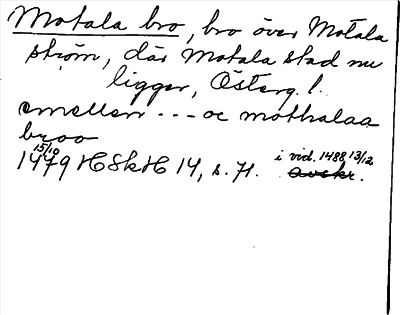 Motala bro, bro över Motala
ström, där Motala stad nu
ligger, Österg. l.
emellen --- oc mothalaa
broo
15/10 i vid. 1488 13/12
1479 HSkH 14, s. 71. avskr.